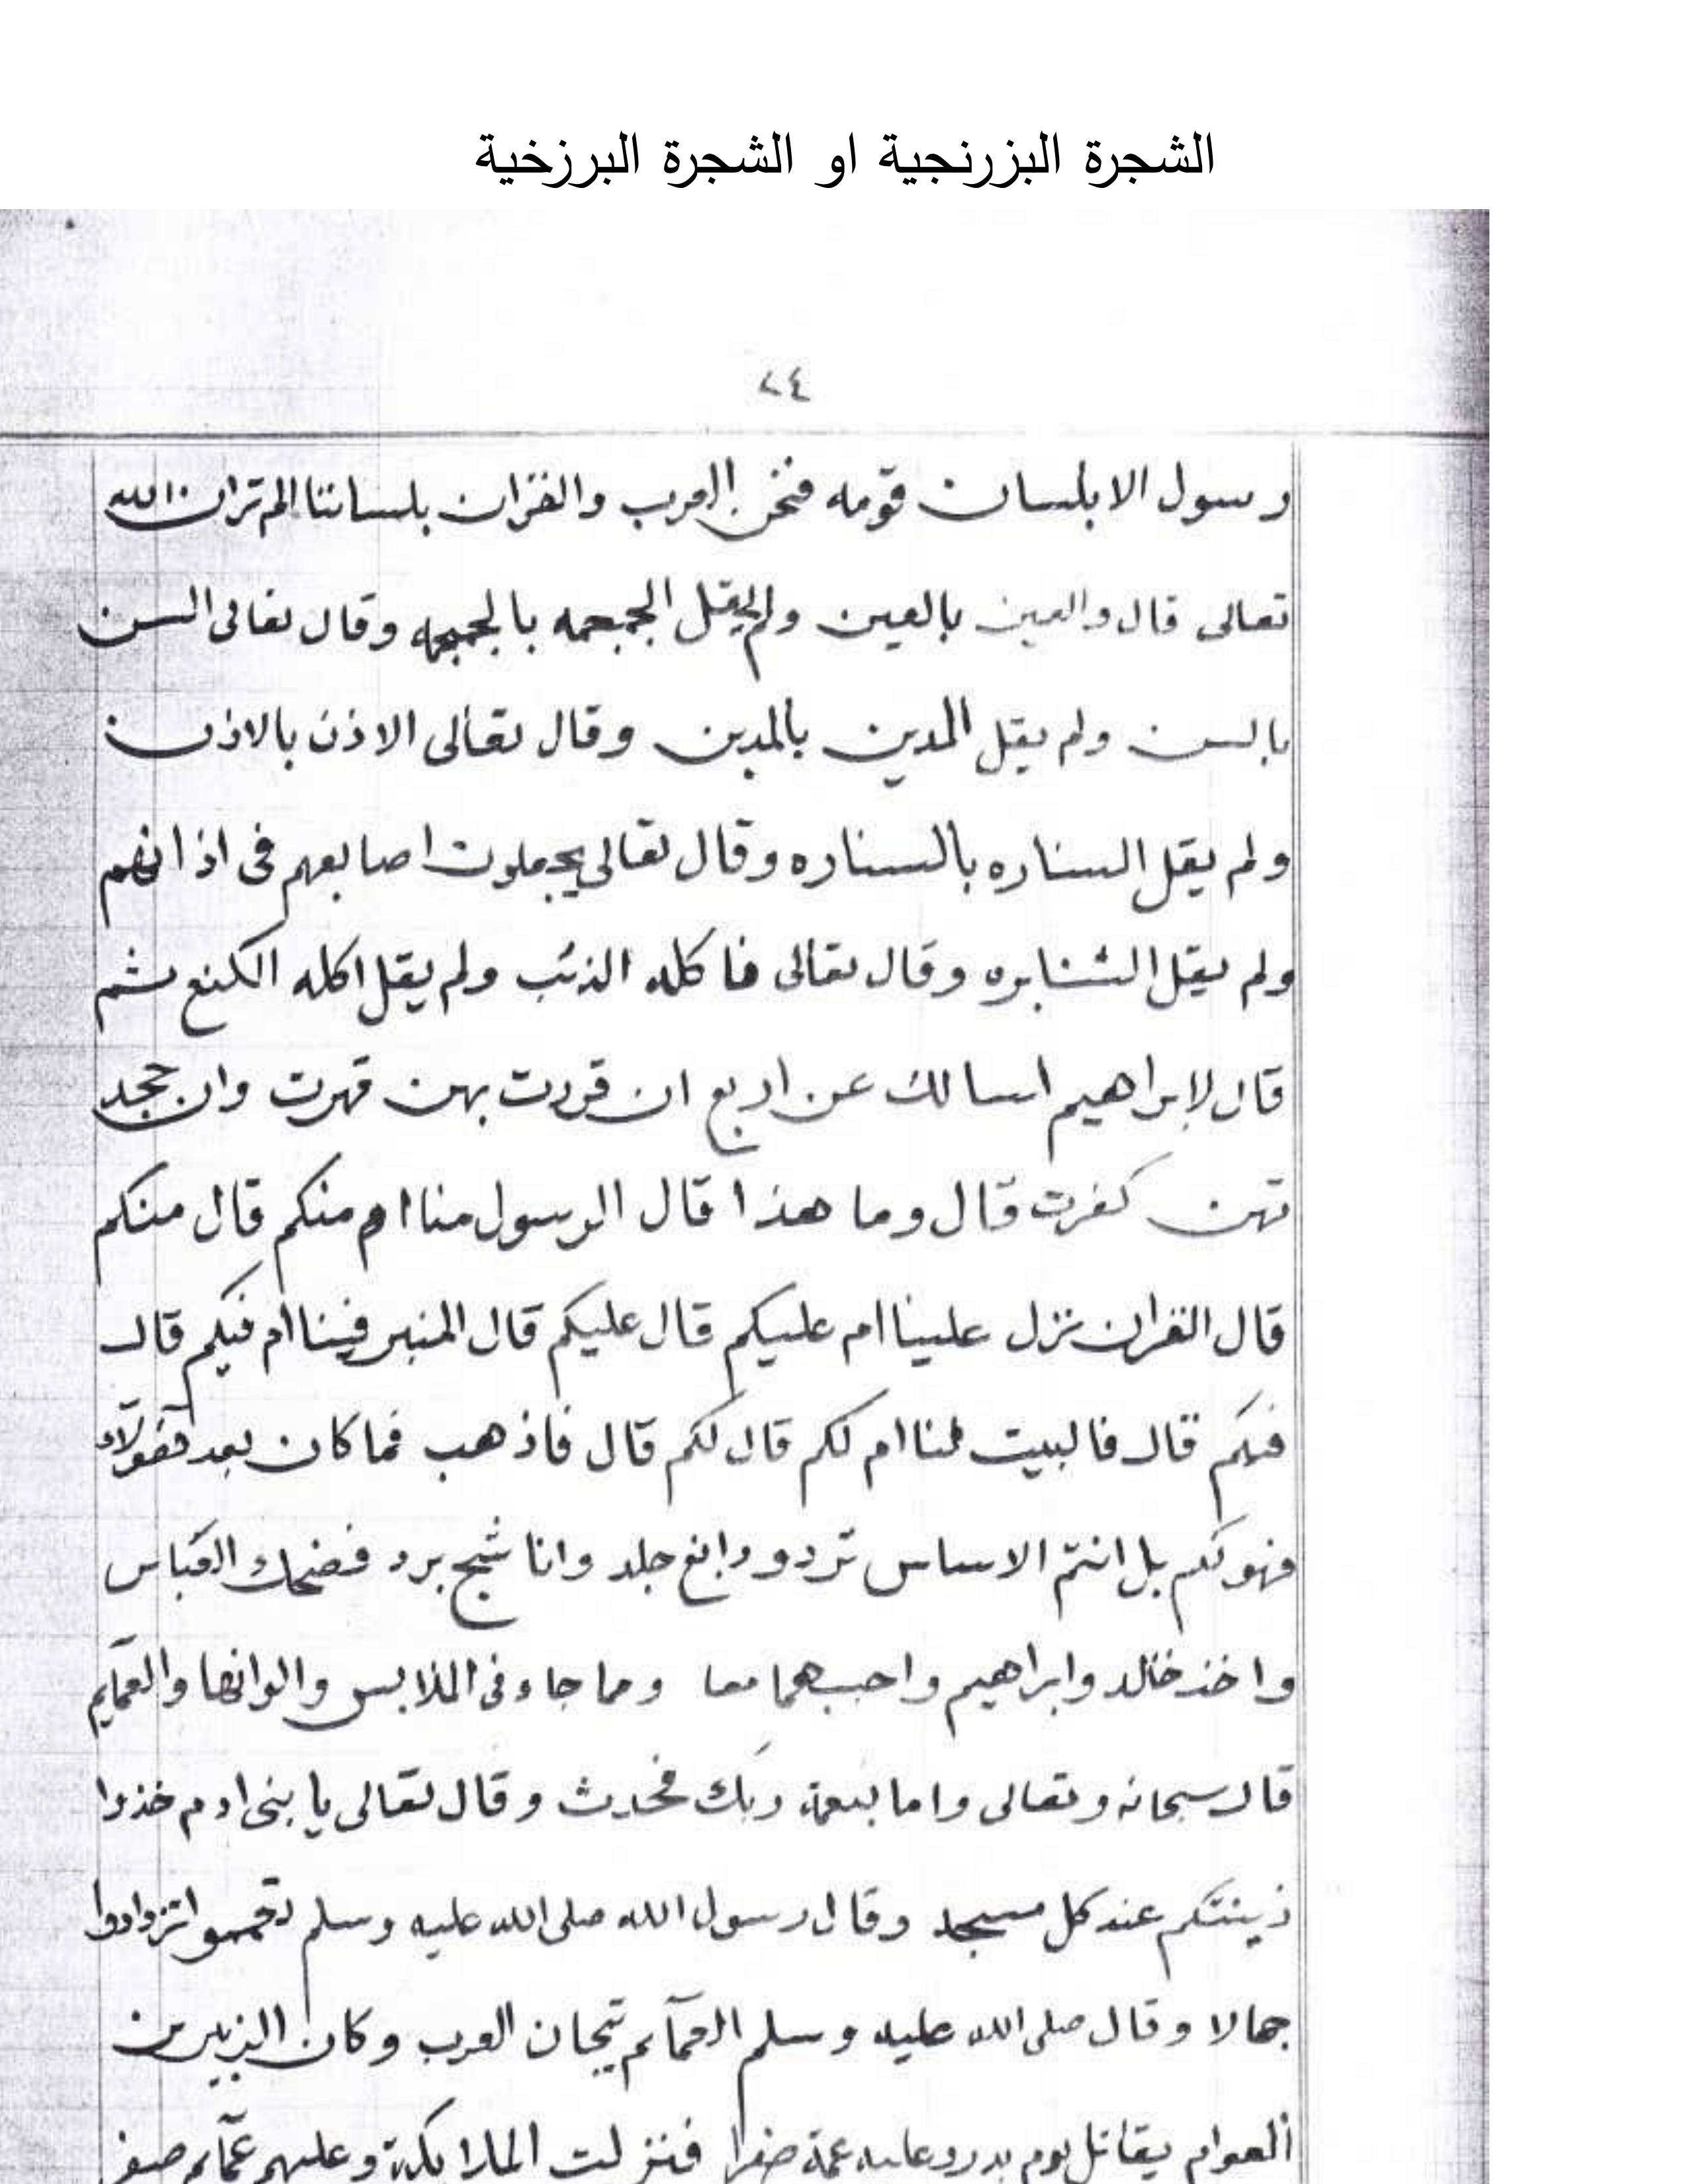 الشجرة البزرنجية او الشجرة البرزخية
٢٤
رسول الا بلسان قومه فنحن العرب والقران بلساننا الم تران الله
تعالى قال والعين بالعين ولم يقل الجمجمه بالجمجمه وقال تعالى السن
بالسن ولم يقل المدين بالمدين وقال تعالى الاذن بالاذن
ولم يقل السناره بالسناره وقال تعالى يجعلون اصابعهم فى اذانهم
ولم يقل الشنابره وقال تعالى فاكله الذئب ولم يقل اكله الكنع ثم
قال لابراهيم اسالك عن اربع ان قررت بهن قهرت وان جحد
تهن كفرت قال وما هذا قال الرسول منا ام منكم قال منكم
قال القران نزل علينا ام عليكم قال عليكم قال المنبر فينا ام فيكم قال
فيكم قال فالبيت لنا ام لكم قال لكم قال فاذهب فما كان بعد هٰولآء
فهو لكم بل انتم الاساس ترد ودابغ جلد وانا نسج برد فضحك العباس
واخذ خالد وابراهيم واحبهما معا ومما جاء فى الملابس والوانها والعمآيم
قال سبحانه وتعالى واما بنعمة ربك فحدث وقال تعالى يا بنى ادم خذوا
زينتكم عند كل مسجد وقال رسول الله صلى الله عليه وسلم تعمموا تزدادوا
جمالا وقال صلى الله عليه وسلم العمآيم تيجان العرب وكان الزبير بن
العوام يقاتل يوم بدر وعليه عمة صفرا فنزلت الملايكة وعليهم عمآيم صفر